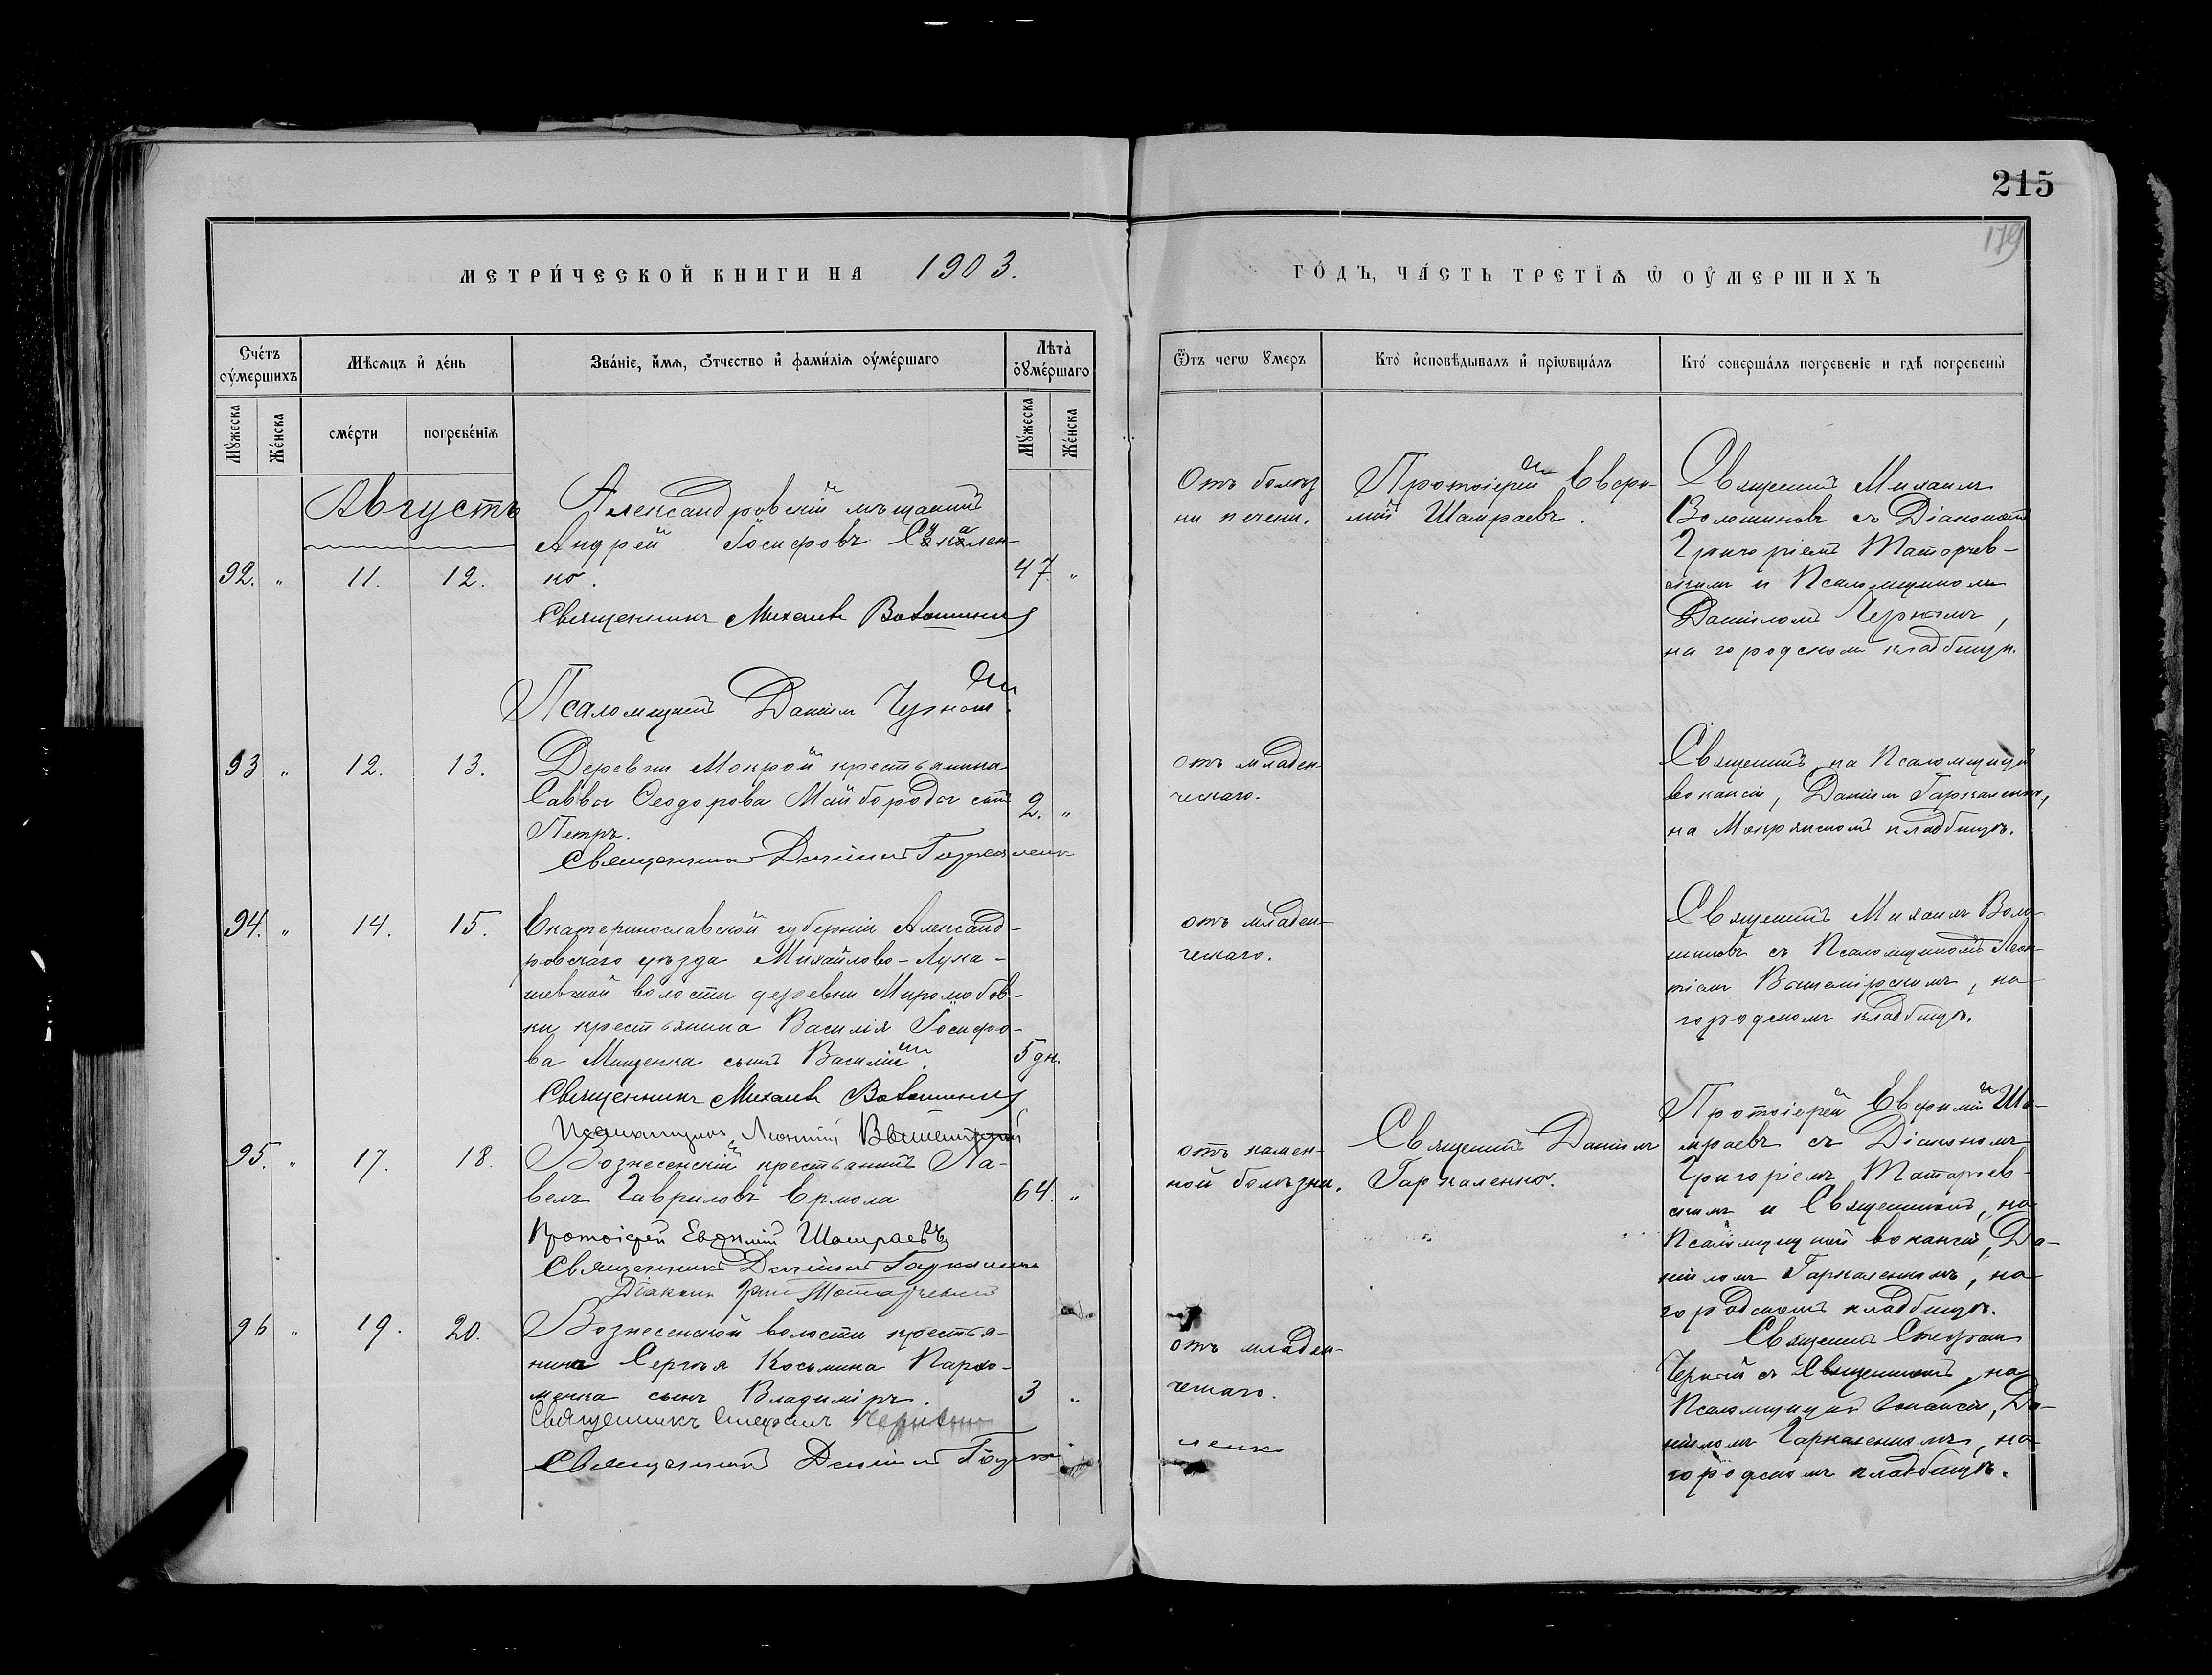 215
179
МЕТРИ́ЧЕСКОЙ КНИГИ НА 1903. ГО́ДЪ, ЧА́СТЬ ТРЕТІѦ Ѡ ОУ҆МЕРШИХЪ
Сче́тъ оу҆ме́ршихъ
Мѣсѧцъ и҆ де́нь
Зва́нїе, и҆́мѧ, о҆́тчество и҆ фами́лїѧ оу҆ме́ршаго
Лѣта̀ оу҆ме́ршаго
Ѿтъ чегѡ ᲂумеръ
Кто̀ и҆сповѣ́дывалъ и҆ прїѡбща́лъ
Кто́ соверша́лъ погребенїе и гдѣ̀ погребены̀
Мꙋ́жеска
Же́нска
сме́рти
погребе́нїѧ
Мꙋ́жеска
Же́нска
Августъ
92. " 11. 12.
Александровскій мѣщанинъ
Андрей Іосифовъ Сукален-
ко.
47 "
Священникъ Михаилъ Волошиновъ
Псаломщикъ Даніилъ
Отъ болѣз
ни печени.
Протоіерей Евфи-
мій Шамраевъ.
Священникъ Михаилъ
Волошиновъ съ Діакономъ
Григоріемъ Матарчев-
скимъ и Псаломщикомъ
Даніиломъ
на городскомъ кладбищѣ.
93 " 12. 13.
Деревни Мокрой крестьянина
Саввы Ѳеодорова Майбороды сынъ
Петръ.
2. "
Священникъ Даніилъ Гаркаленко
отъ младен-
ческаго.
Священникъ, на Псаломщицкой
вакансіи, Даніилъ Гаркаленко,
на Мокрянскомъ кладбищѣ.
94. " 14. 15.
Екатеринославской губерніи Александ-
ровскаго уѣзда Михайлово-Лука-
шевской волости деревни Миролюбов-
ки крестьянина Василія Іосифо-
ва Мищенка сынъ Василій.
5 дн.
Священникъ Михаилъ Волошиновъ
Псаломщикъ Леонтій Вышемірскій
отъ младен-
ческаго.
Священникъ Михаилъ Воло-
шиновъ съ Псаломщикомъ Леон-
тіемъ Вышемірскимъ, на
городскомъ кладбищѣ.
95. " 17. 18.
Вознесенскій крестьянинъ Па-
велъ Гавриловъ Ермола
64. "
Протоіерей Евфимій Шамраевъ
Священникъ Даніилъ Гаркаленко
Діаконъ Григ. Матарчевскій
отъ камен-
ной болѣзни.
Священникъ Даніилъ
Гаркаленко.
Протоіерей Евфимій Ша-
мраевъ съ Діакономъ
Григоріемъ Матарчев-
скимъ и Священникомъ, на
Псаломщицкой вакансіи, Да-
ніиломъ Гаркаленкомъ, на
городскомъ кладбищѣ.
96 " 19. 20.
Вознесенской волости крестья-
нина Сергѣя Косьмина Пархо-
менка сынъ Владиміръ.
3 "
Священникъ Стефанъ Черный
Священникъ Даніилъ Гарка
ленко
отъ младен-
ческаго.
Священникъ Стефанъ
Черный съ Священникомъ, на
Псаломщицкой вакансіи, Да-
ніиломъ Гаркаленкомъ, на
городскомъ кладбищѣ.